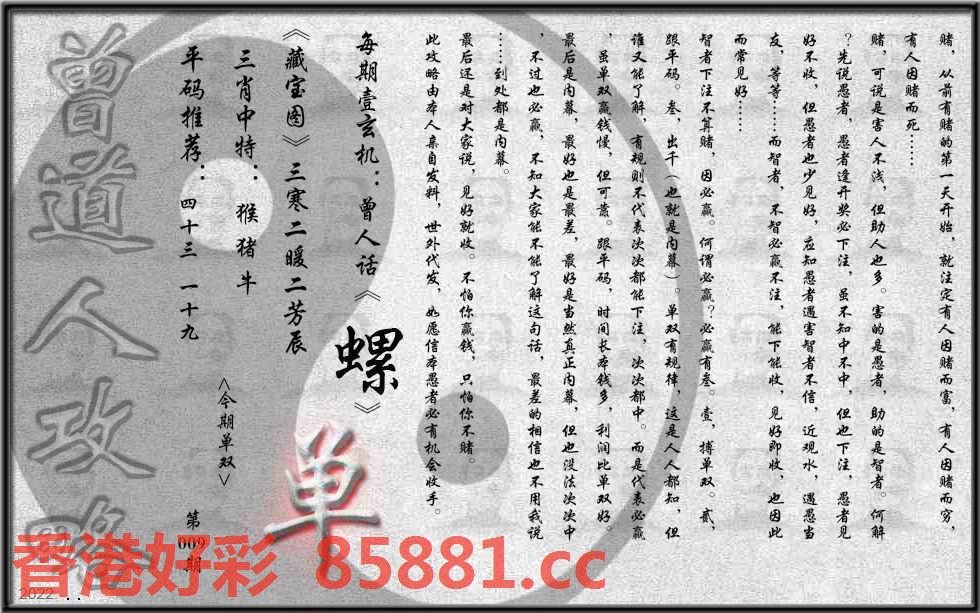 赌，从前有赌的第一天开始，就注定有人因赌而富，有人因赌而穷，
有人因赌而死……
赌，可说是害人不浅，但助人也多。害的是愚者，助的是智者。何解
？先说愚者，愚者逢开奖必下注，虽不知中不中，但也下注，愚者见
好不收，但愚者也少见好，应知愚者遇害智者不信，近观水，遇愚当
友，等等……而智者，不智必赢不注，能下能收，见好即收，也因此
而常见好……
智者下注不算赌，因必赢。何谓必赢？必赢有叁。壹，搏单双。贰，
跟平码。叁，出千（也就是内幕）。单双有规律，这是人人都知，但
谁又能了解，有规则不代表次次都能下注，次次都中。而是代表必赢
，虽单双赢钱慢，但可蓄。跟平码，时间长本钱多，利润比单双好。
最后是内幕，最好也是最差，最好是当然真正内幕，但也没法次次中
，不过也必赢，不知大家能不能了解这句话，最差的相信也不用我说
……到处都是内幕。
最后还是对大家说，见好就收。不怕你赢钱，只怕你不赌。
此攻略由本人亲自发料，世外代发，如愿信本愚者必有机会收手。
每期壹玄机：曾人话《螺》
《藏宝图》三寒二暖二芳辰
三肖中特：猴猪牛
平码推荐：四十三 一十九
<今期单双>
单
第009期
曾道人攻略
香港好彩 85881.cc
2022